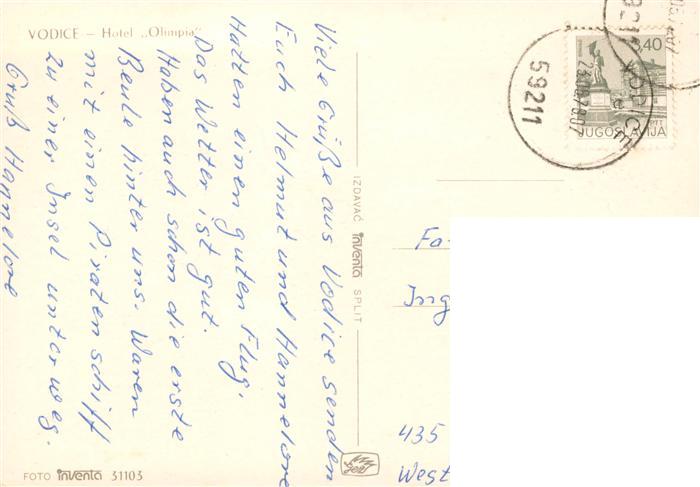 VODICE – Hotel „Olimpia"
Viele Grüße aus Vodice senden
Euch Helmut und Hannelore
Hatten einen guten Flug.
Das Wetter ist gut.
Haben auch schon die erste
Beule hinter uns. Waren
mit einen Piratenschiff
zu einer Insel unterweg.
Gruß Hannelore
IZDAVAČ inventa SPLIT
FOTO inventa 31103
59211
VODICE
3,40
JUGOSLAVIJA
PTT
59211
Fa
Ing
435
West